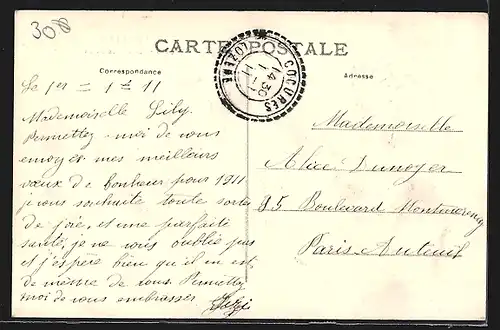 308
CARTE POSTALE
Correspondance
Adresse
COCURÈS
LOZÈRE
14 30
1 -1
11
Le 1er = 1 = 11
Mademoiselle Lily.
Permettez-moi de vous
envoyer mes meilleurs
vœux de bonheur pour 1911
je vous souhaite toute sortes
de joie, et une parfaite
santé, je ne vous oublie pas
et j'espère bien qu'il en est
de même de vous. Permettez
moi de vous embrasser
Mademoiselle
Alice Lunoyer
95 Boulevard Montmorency
Paris-Auteuil